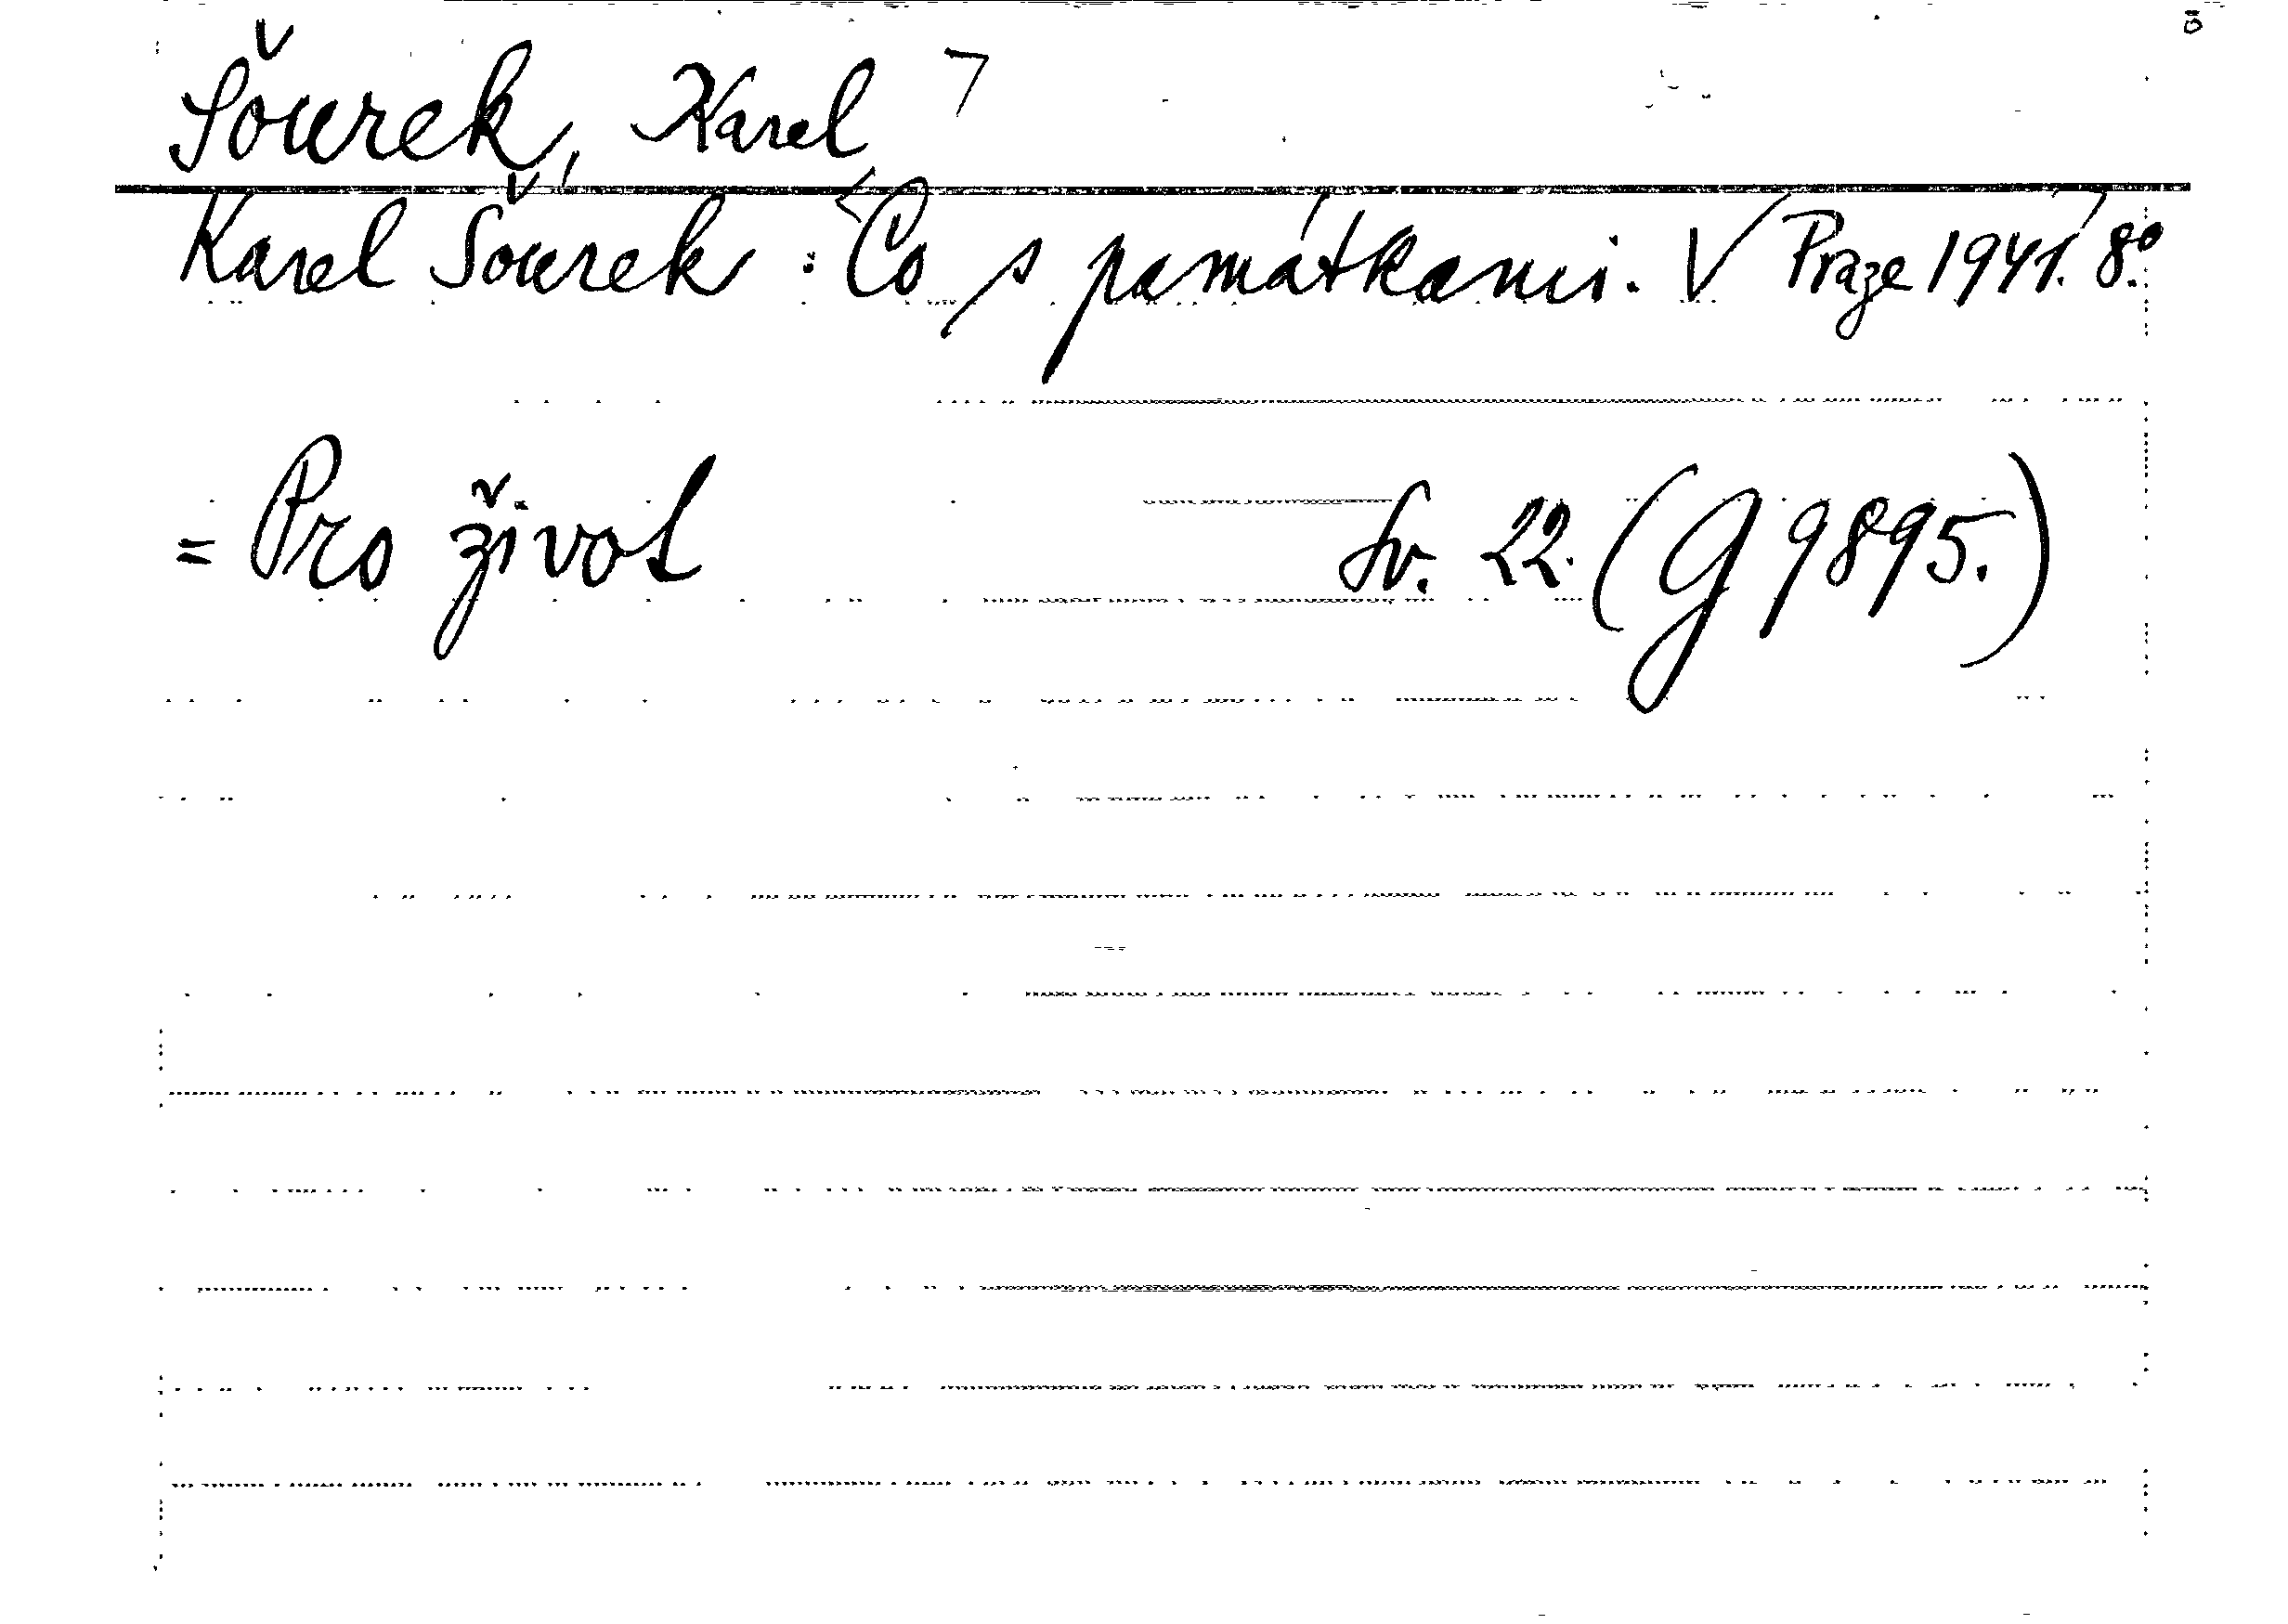 Šourek, Karel
Karel Šourek: Co s památkami. V Praze 1941. 8.°
= Pro život Sv. 22. (G 9895.)